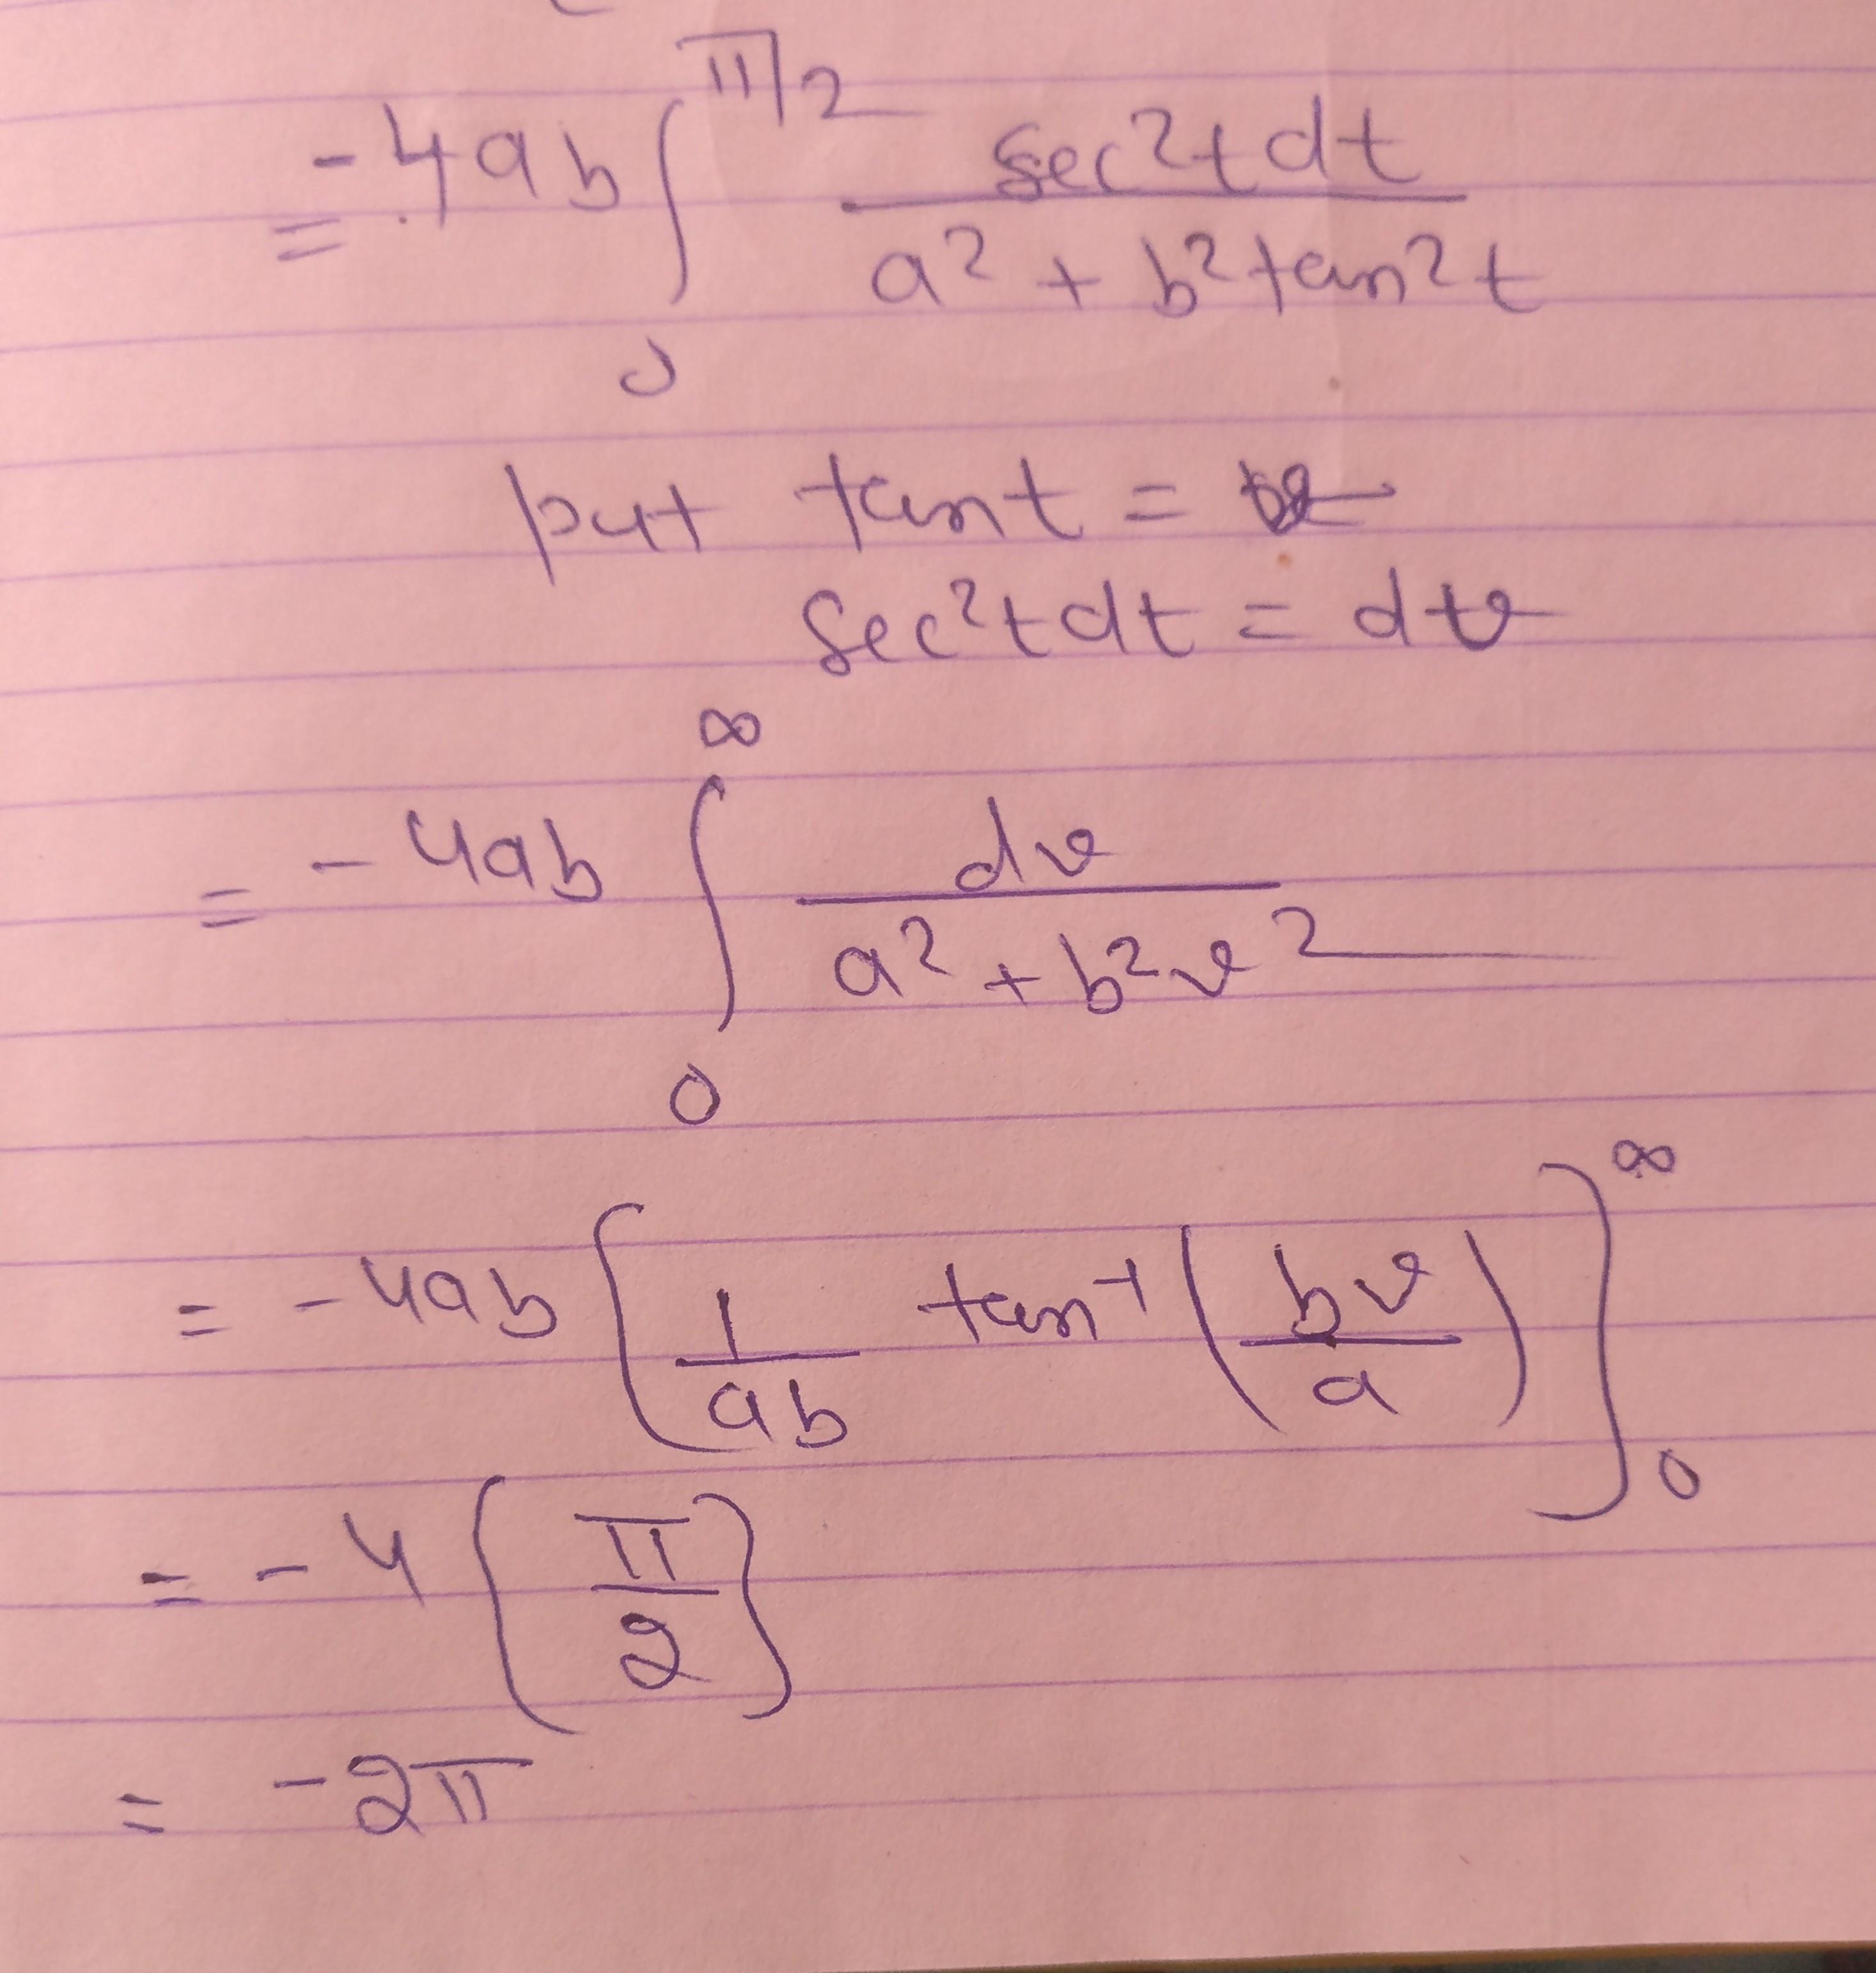 = -4ab ∫₀^{π/2} sec²t dt / (a² + b² tan²t)
put tan t = v
sec²t dt = dv
= -4ab ∫₀^∞ dv / (a² + b²v²)
= -4ab [1/ab tan⁻¹(bv/a)]₀^∞
= -4 [π/2]
= -2π